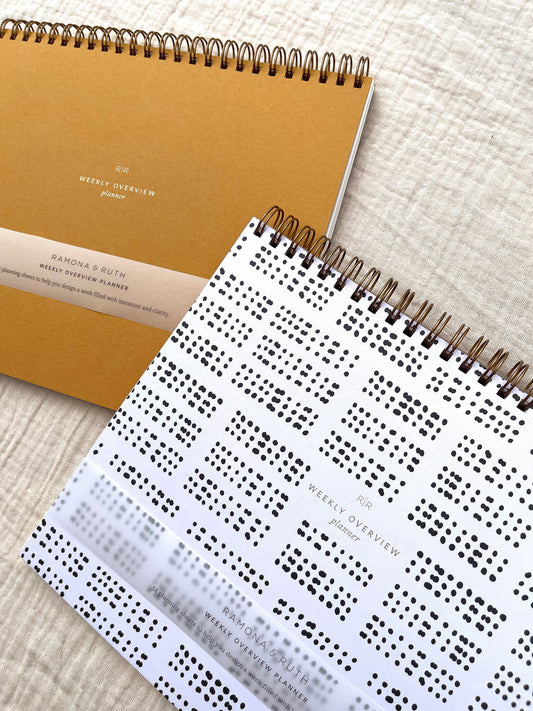 R|R
WEEKLY OVERVIEW
planner
RAMONA & RUTH
WEEKLY OVERVIEW PLANNER
planning sheets to help you design a week filled with intention and clarity.
R|R
WEEKLY OVERVIEW
planner
RAMONA & RUTH
WEEKLY OVERVIEW PLANNER
52 planning sheets to help you design a week filled with